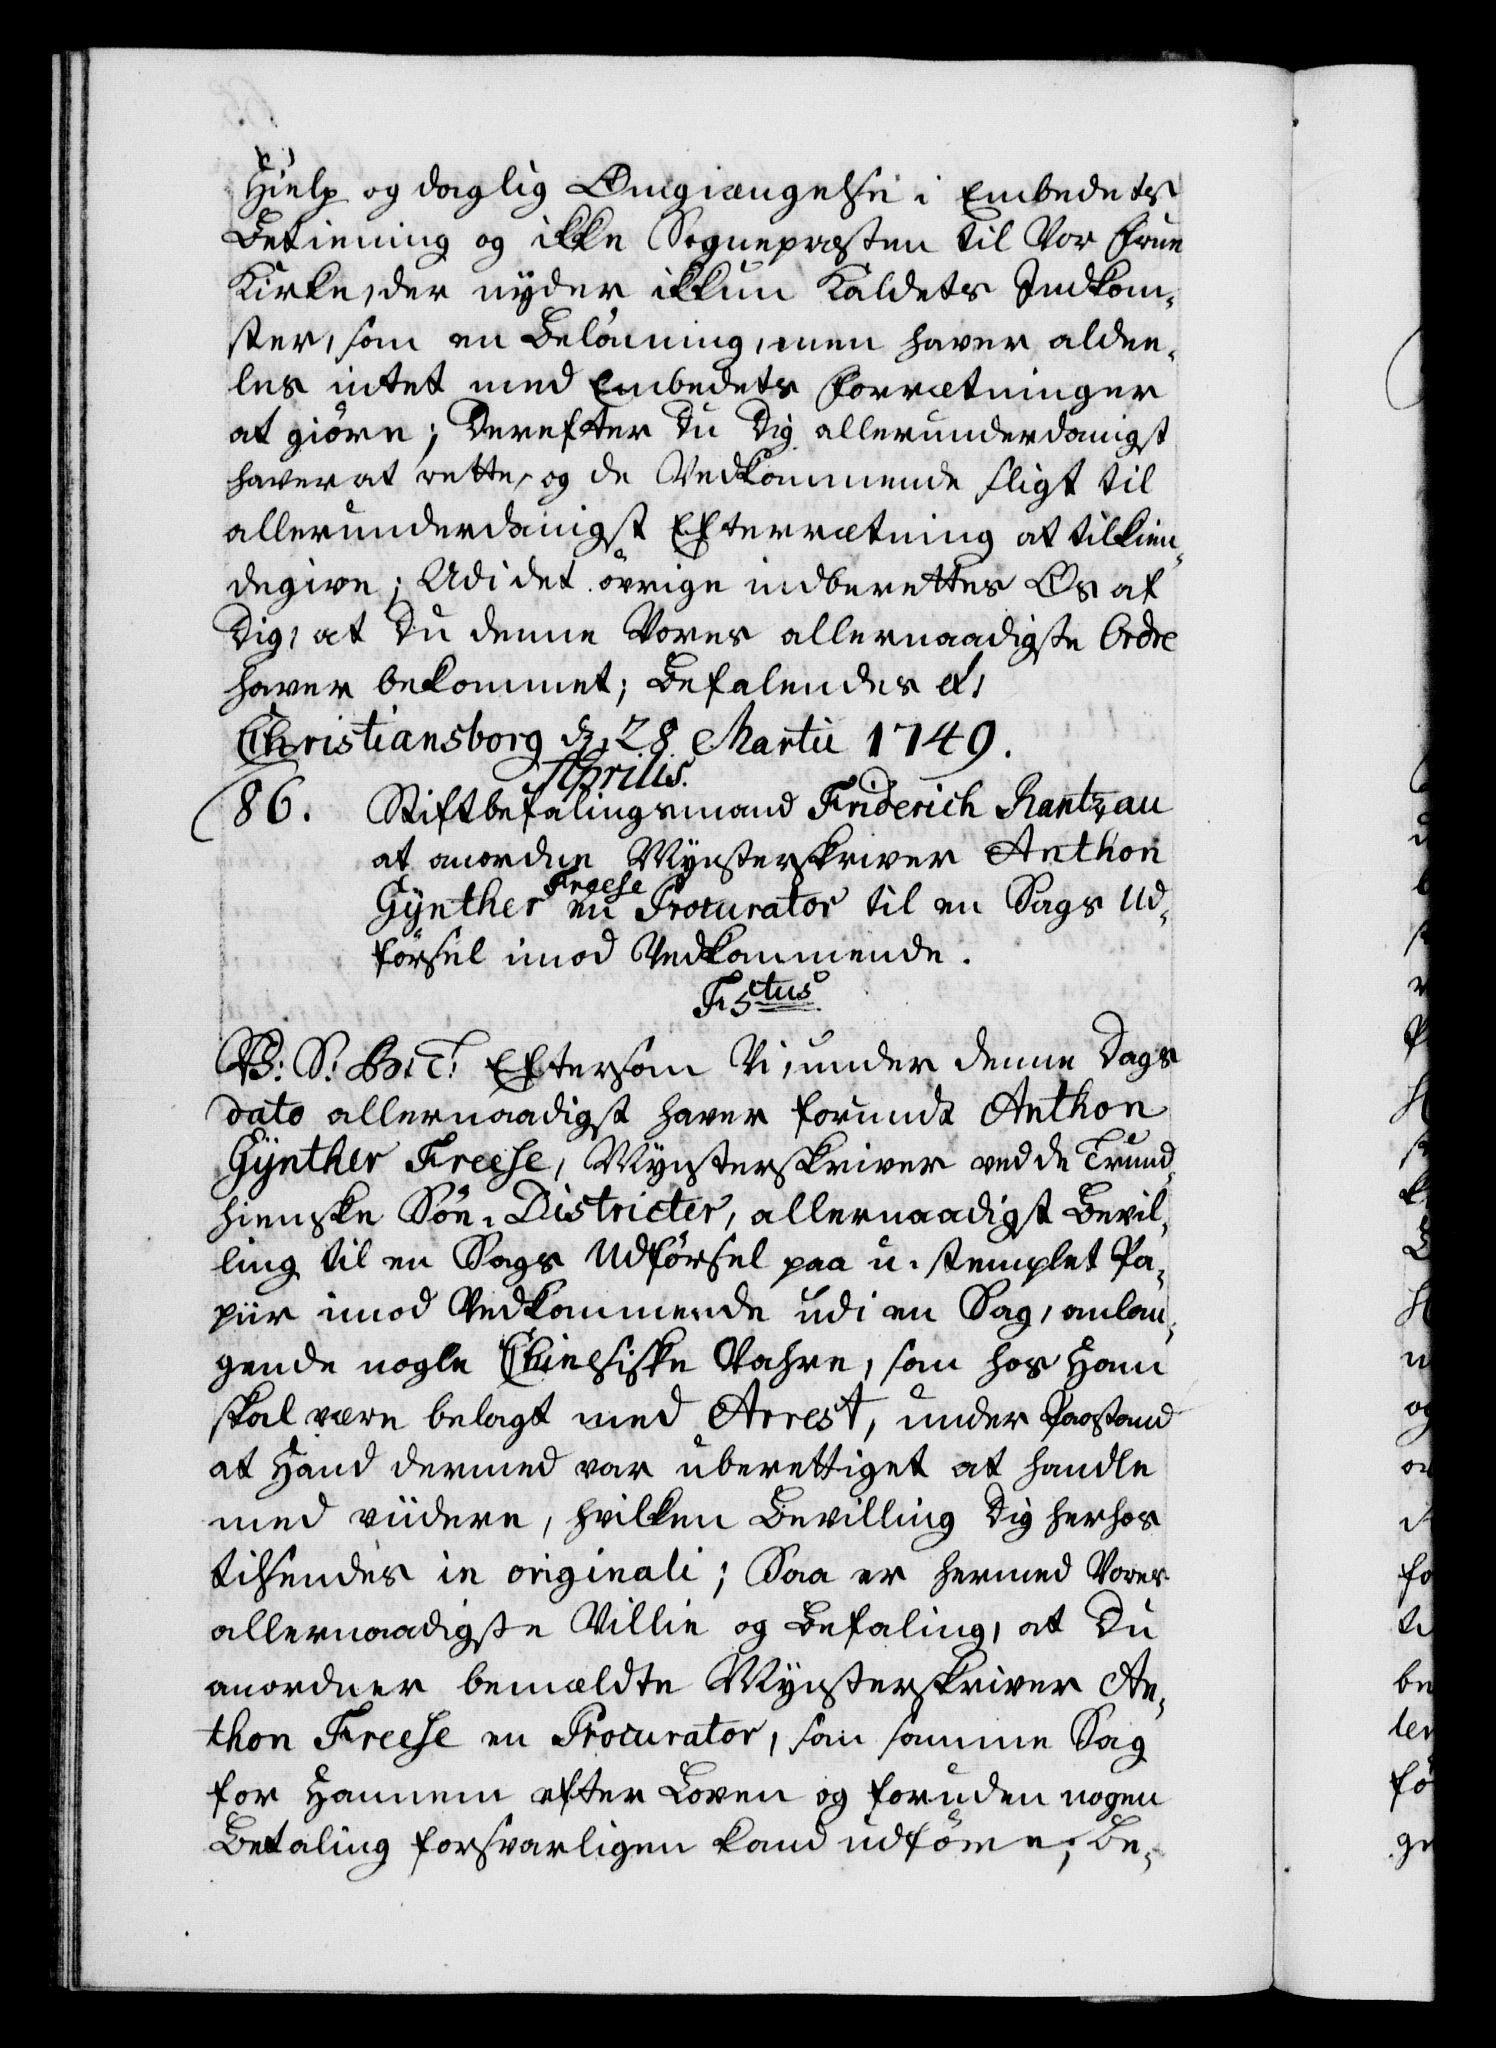 Hielp og daglig Omgiængelse i Embedets
Betiening og ikke Sognepræsten til Vor Frue
Kirke, der nyder ikkun Kaldets Indkom-
ster, som en Belönning, men haver aldee-
les intet med Embedets Forrætninger
at giöre; Derefter Du Dig allerunderdanigst
haver at rette, og de Vedkommende sligt til
allerunderdanigst Efterrætning at tilkien-
degive; Udi det övrige indberettes Os af
Dig, at Du denne Vores allernaadigste Ordre
haver bekommet; Befalendes &,
Christiansborg d. 28 Martii 1749.
Aprilis.
86. Stiftbefalingsmand Friderich Rantzau
at anordne Mynsterskriver Anthon
Gÿnther Freese en Procurator til en Sags Ud-
försel imod Vedkommende.
F. 5tus
Eftersom Vi, under denne Dags
dato allernaadigst haver forundt Anthon
Gÿnther Freese, Mynsterskriver ved de Trund-
hiemske Söe-Districter, allernaadigst Bevil-
ling til en Sags Udförsel paa u-stemplet Pa-
piir imod Vedkommende udi en Sag, anlan-
gende nogle Chinesiske Vahre, som hos Ham
skal være belagt med Arrest, under Paastand
at Hand dermed var uberettiget at handle
med viidere, hvilken Bevilling Dig herhos
tilsendes in originali; Saa er hermed Vores
allernaadigste Villie og Befaling, at Du
anordner bemældte Mynsterskriver An-
thon Freese en Procurator, som samme Sag
for Hannem efter Loven og foruden nogen
Betaling forsvarligen kand udföre; Be-